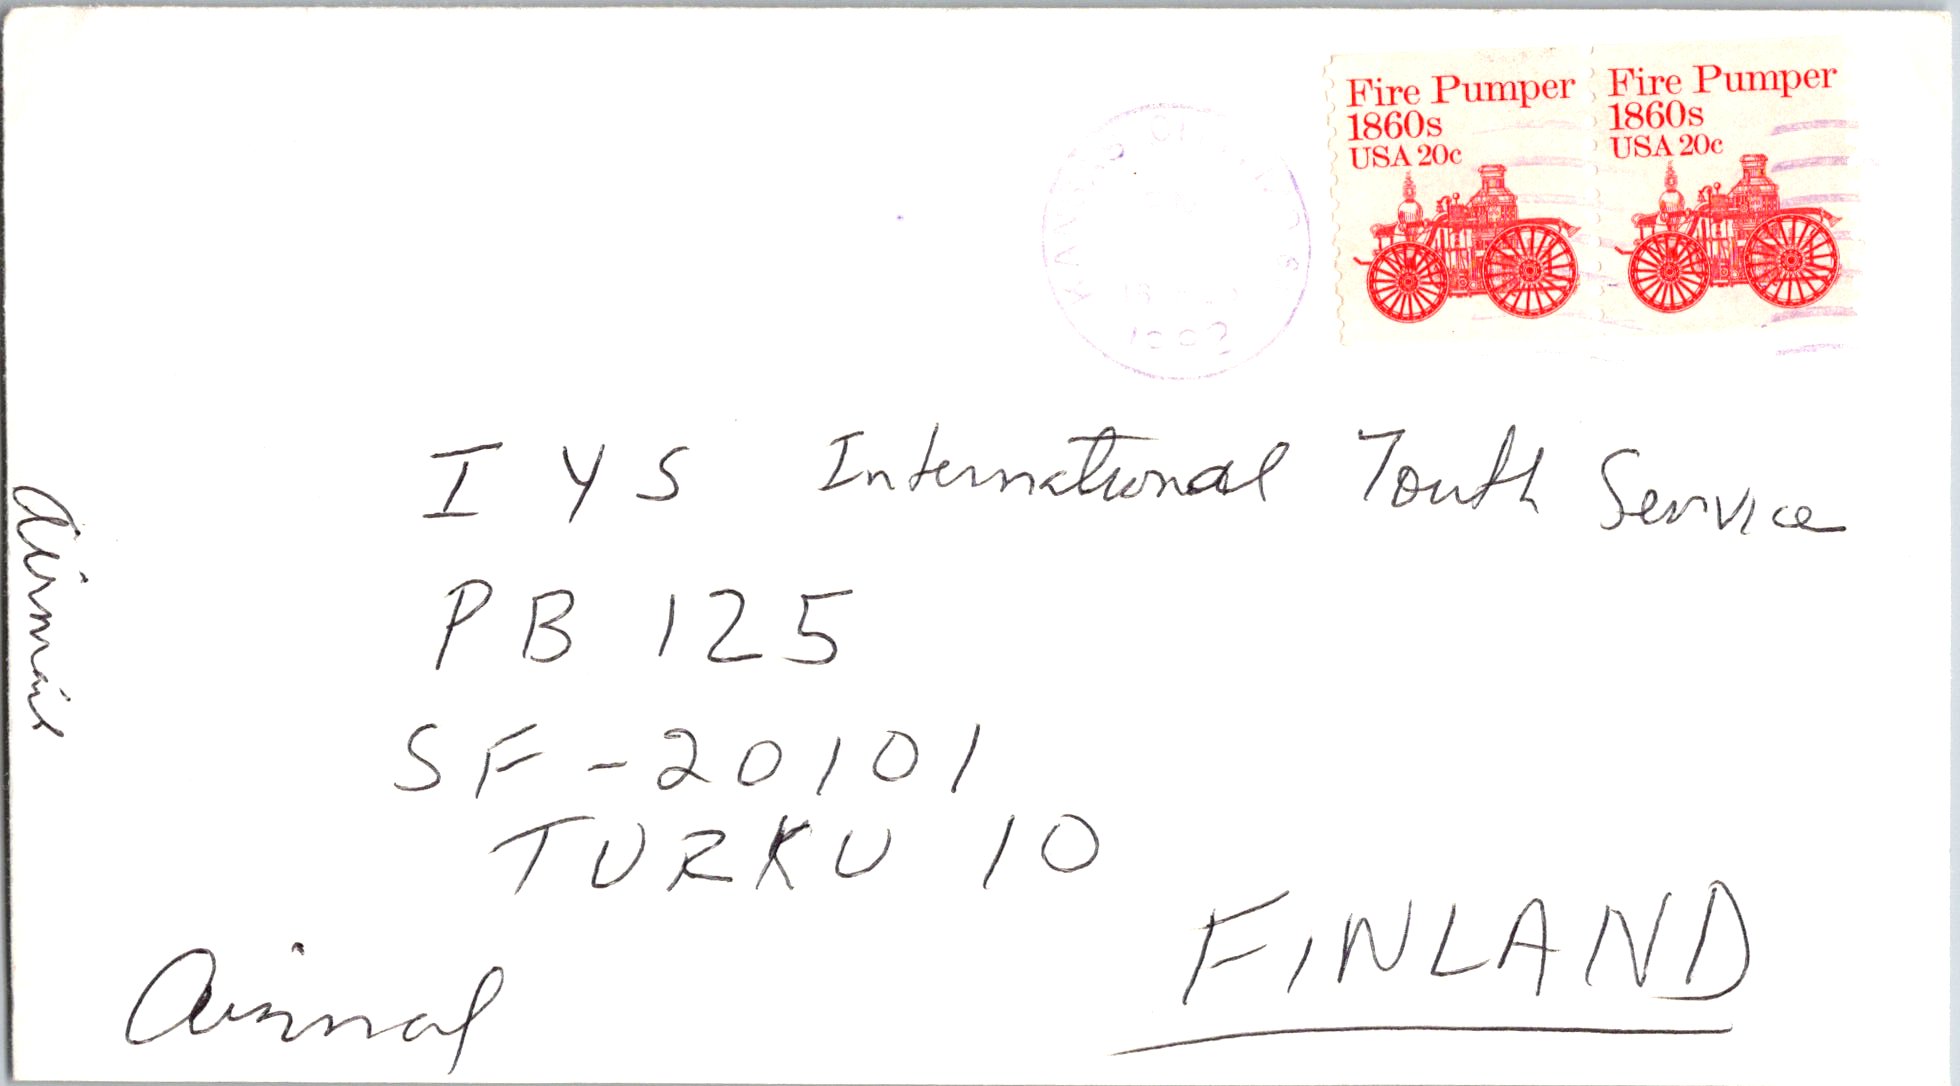 Fire Pumper
1860s
USA 20c
Fire Pumper
1860s
USA 20c
1992
I Y S International Youth Service
PB 125
SF-20101
TURKU 10
FINLAND
Airmail
Airmail